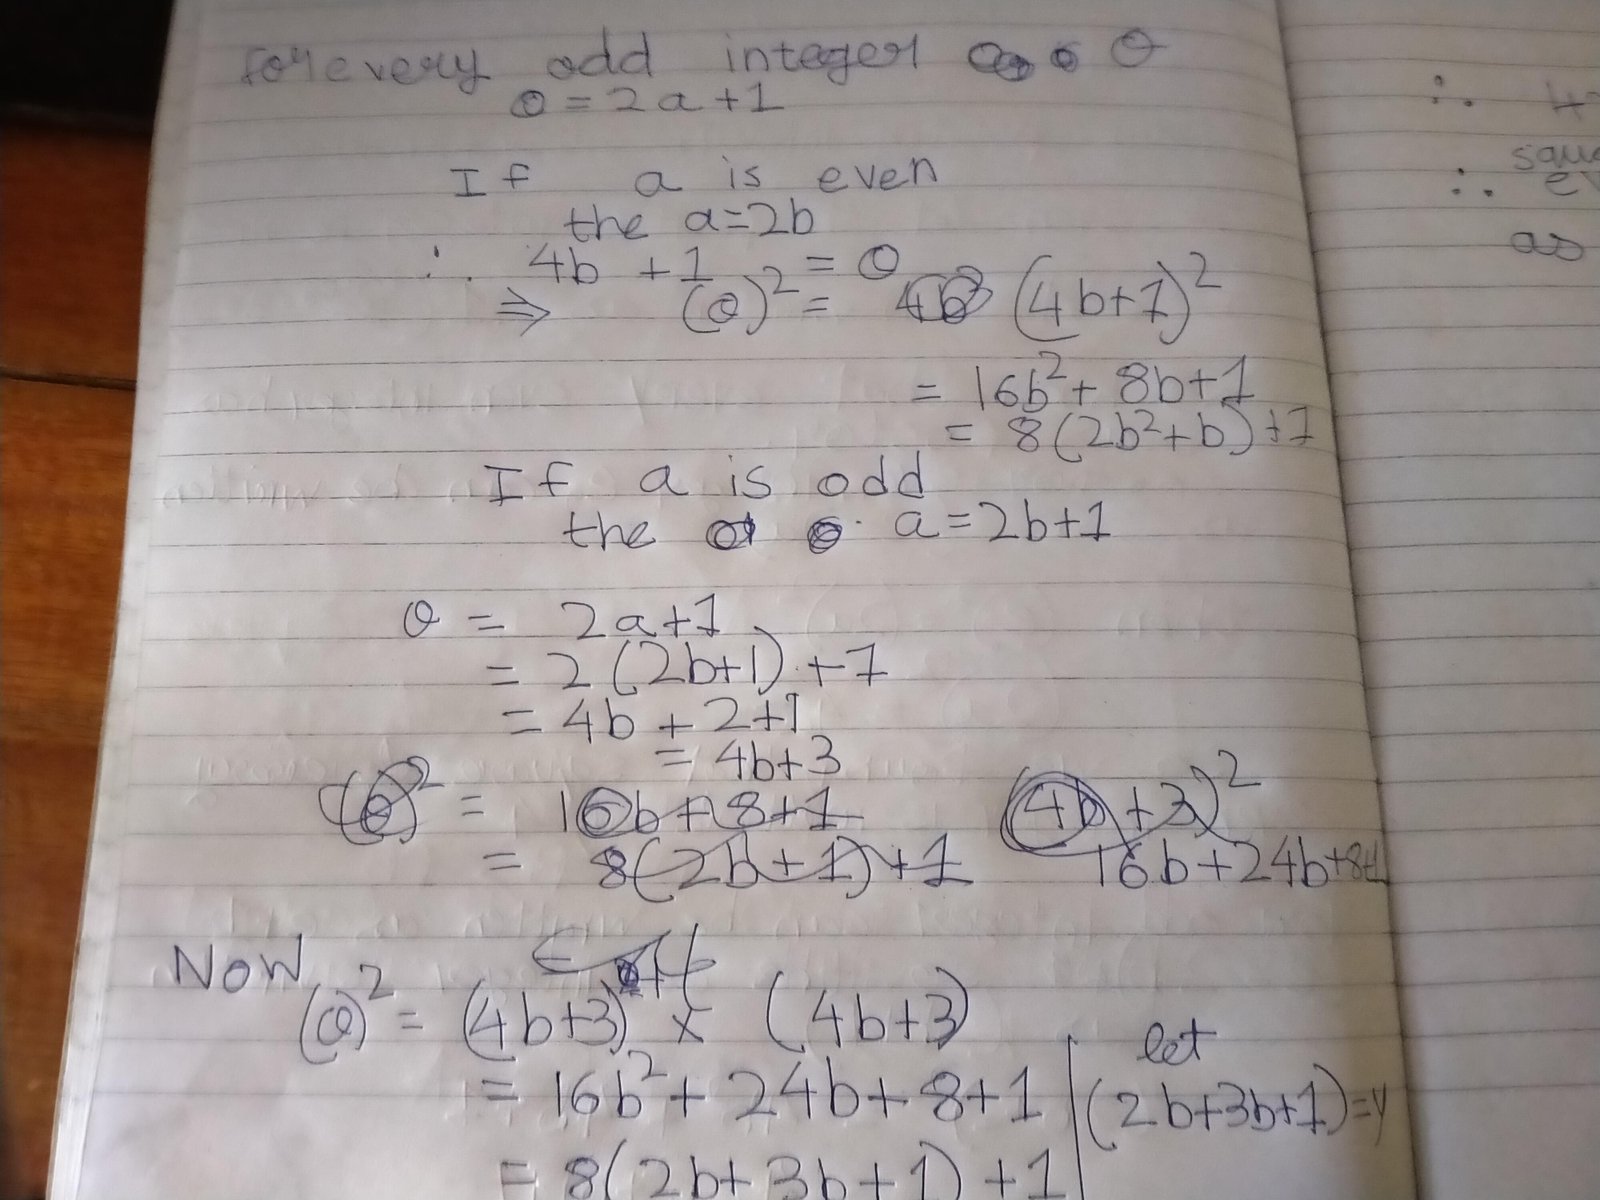 for every odd integer O
O = 2a+1
If a is even
the a=2b
∴ 4b +1 = O
⇒ (O)² = (4b+1)²
= 16b²+ 8b+1
= 8(2b²+b)+1
If a is odd
the a=2b+1
O = 2a+1
= 2(2b+1)+1
= 4b + 2+1
= 4b+3
(O)² = 16b+8+1 (4b+3)²
= 8(2b+1)+1 16b+24b+8+1
Now
(O)² = (4b+3) × (4b+3)
let
= 16b²+ 24b+8+1 (2b+3b+1)=y
= 8(2b+3b+1)+1
∴
∴
as